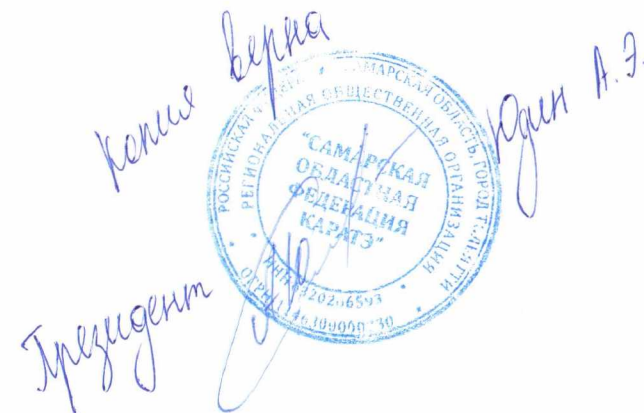 Копия верна
РОССИЙСКАЯ САМАРСКАЯ ОБЛАСТЬ, ГОРОД ТОЛЬЯТТИ
РЕГИОНАЛЬНАЯ ОБЩЕСТВЕННАЯ ОРГАНИЗАЦИЯ
"САМАРСКАЯ
ОБЛАСТНАЯ
ФЕДЕРАЦИЯ
КАРАТЭ"
ИНН
ОГРН
Президент
Юдин А.Э.